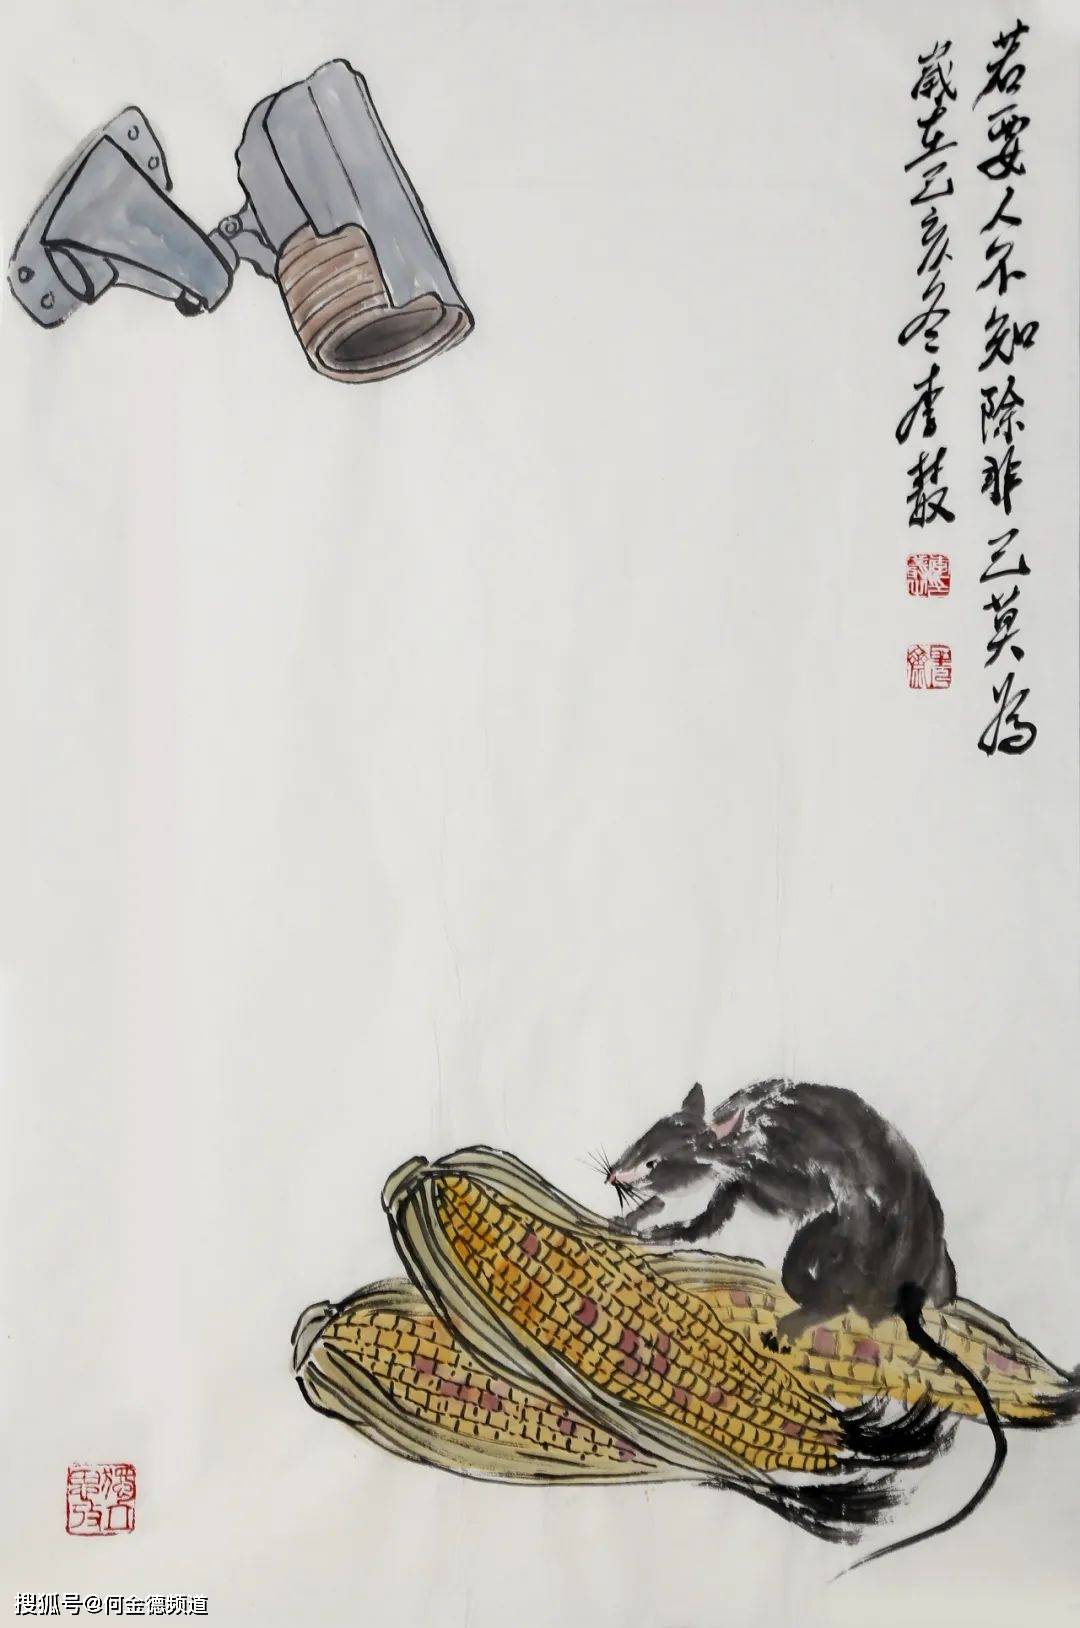 若要人不知除非己莫為
歲在己亥冬李
搜狐号@何金德频道